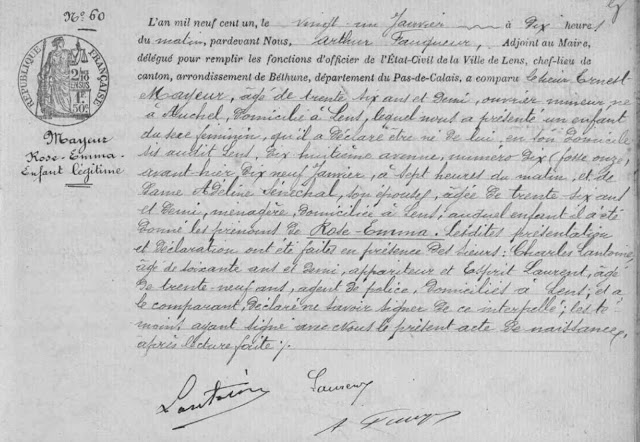 N° 60
RÉPUBLIQUE FRANÇAISE
Mayeur
Rose-Emma-
Enfant Légitime
L'an mil neuf cent un, le vingt-un Janvier à Dix heures
du matin, pardevant Nous, Arthur Fauqueur, Adjoint au Maire,
délégué pour remplir les fonctions d'officier de l'État-Civil de la Ville de Lens, chef-lieu de
canton, arrondissement de Béthune, département du Pas-de-Calais, a comparu Ernest
Mayeur, âgé de trente six ans et Demi, ouvrier mineur né
à Auchel, Domicilié à Lens, lequel nous a présenté un enfant
du sexe féminin, qu'il a Déclaré être né de lui, en son domicile
sis audit Lens, Dix huitième avenue, numéro Dix (fosse onze)
avant hier Dix neuf Janvier, à sept heures du matin, et de
Dame Adéline Sénéchal, son épouse, âgée de trente six ans
et Demi, ménagère, Domiciliée à Lens; auquel enfant il a été
Donné les prénoms de Rose-Emma. Lesdites présentation
et Déclaration ont été faites en présence des sieurs: Charles Lantoine,
âgé de soixante ans et Demi, appariteur et Esprit Laurent, âgé
de trente neuf ans, agent de police, Domiciliés à Lens; et a
le comparant, Déclaré ne savoir signer De ce interpellé; les té-
moins ayant signé avec Nous le présent acte De naissance,
après lecture faite ./.
Lantoine Laurent